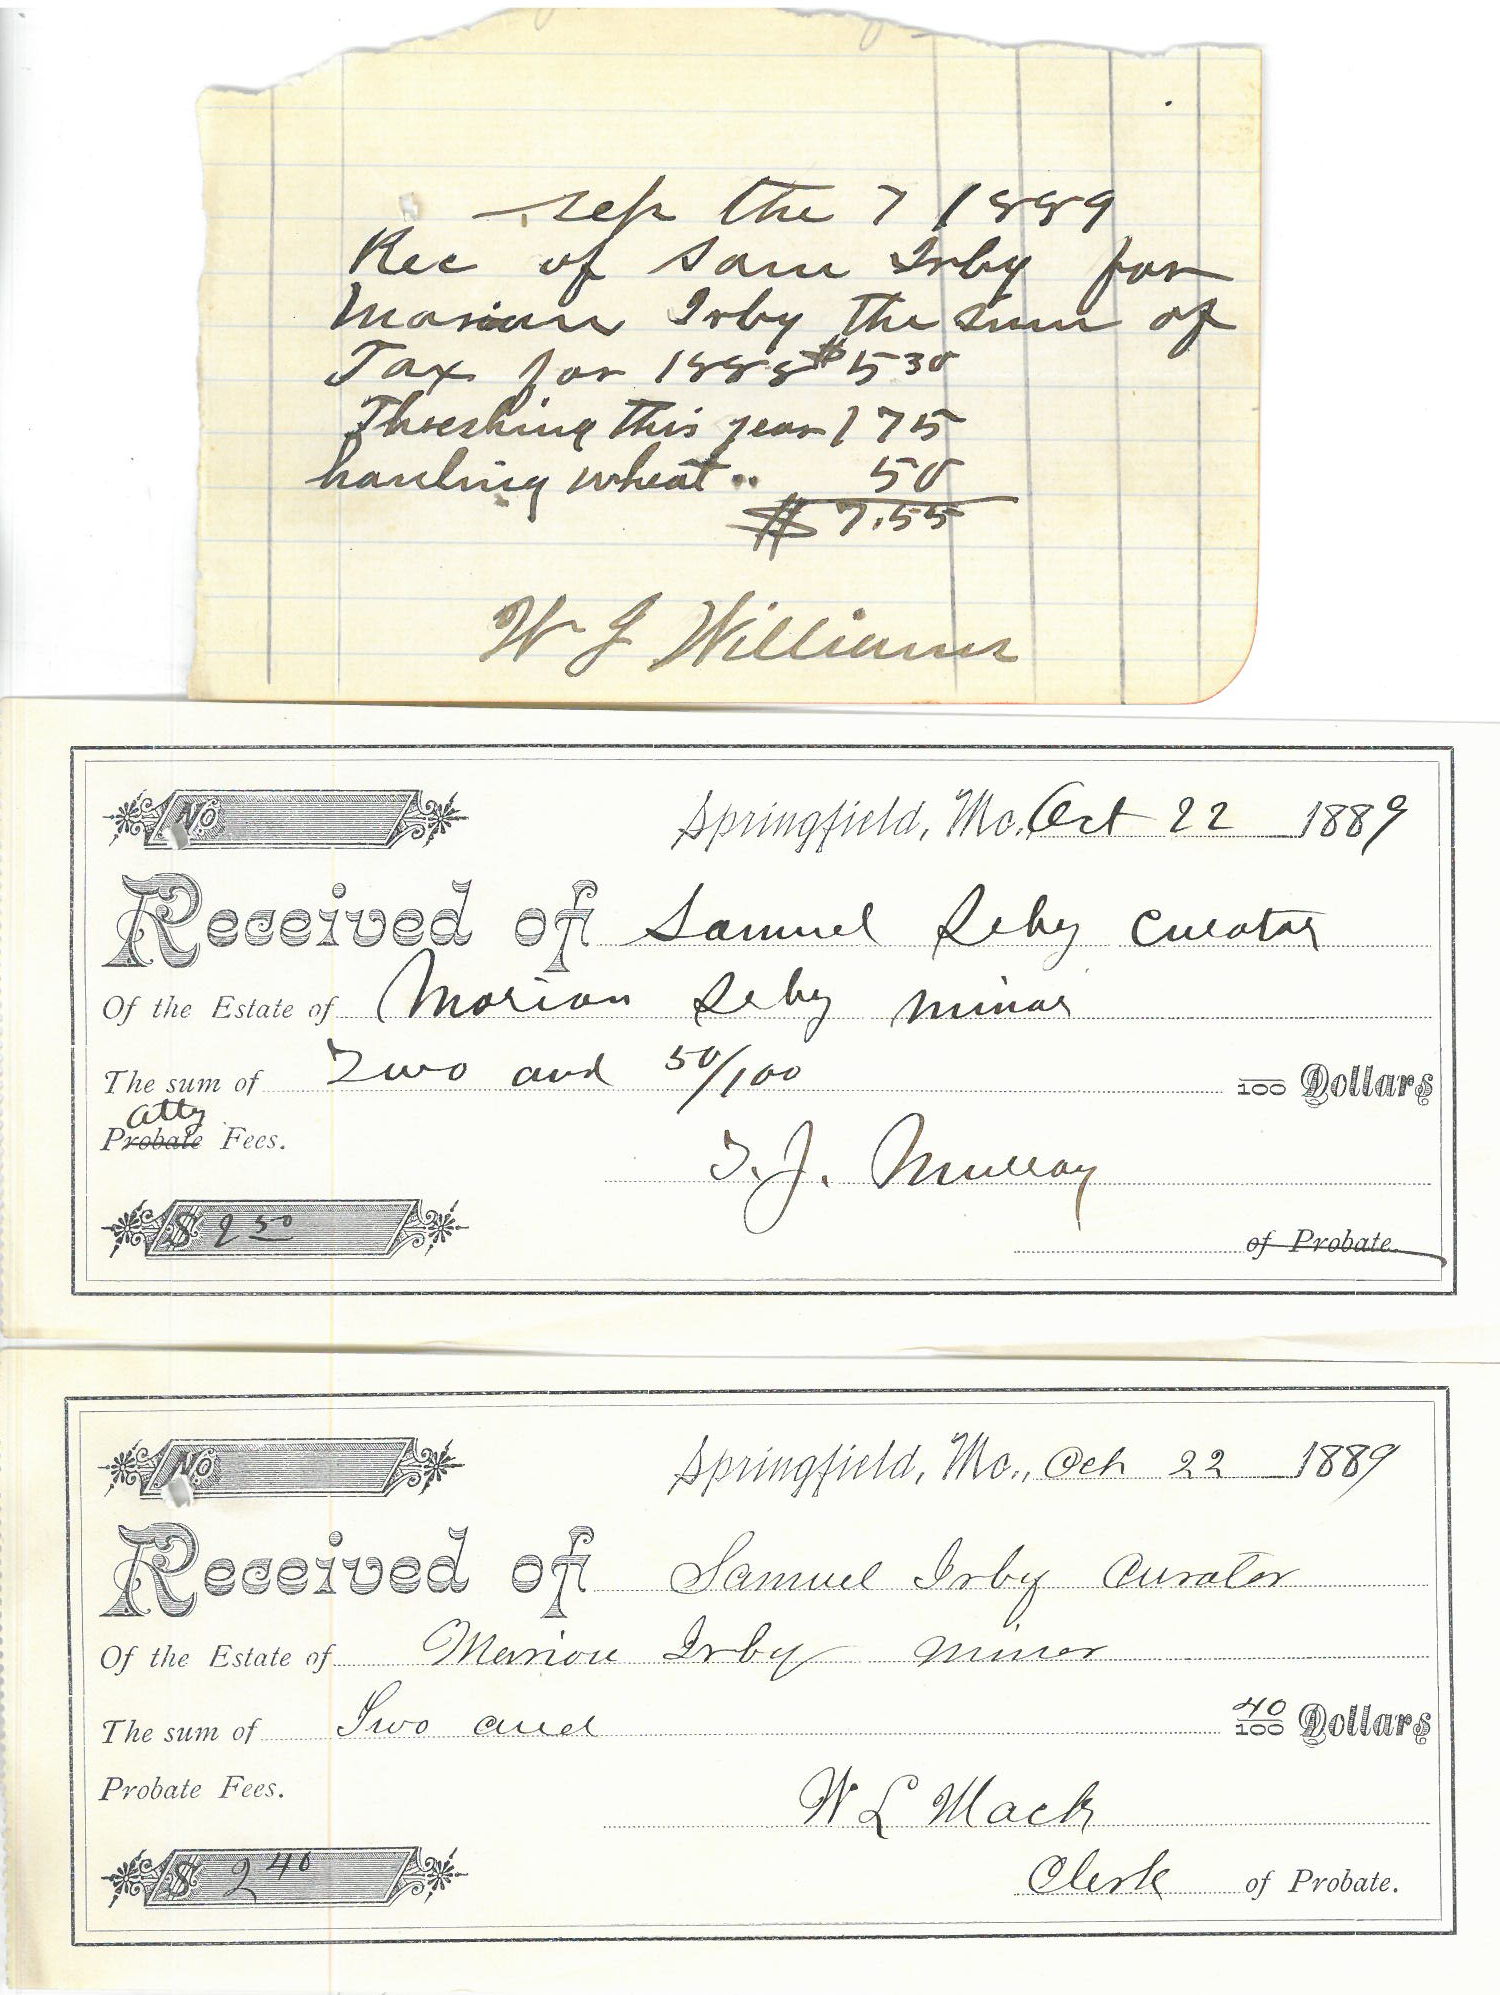 Sep the 7 1889
Rec of Sam Irby for
Marian Irby the sum of
Tax for 1888 $5 30
Threshing this year 1 75
hauling wheat .. 50
$ 7.55
W J Williams
No
Springfield, Mo. Oct 22 1889
Received of Samuel Irby Curator
Of the Estate of Marion Irby minor
The sum of Two and 50/100 /100 Dollars
Atty
Probate Fees.
T. J. Murray
$ 2 50
of Probate.
No
Springfield, Mo., Oct 22 1889
Received of Samuel Irby Curator
Of the Estate of Marion Irby minor
The sum of Two and 40/100 Dollars
Probate Fees.
W L Mack
$ 2 40
Clerk of Probate.